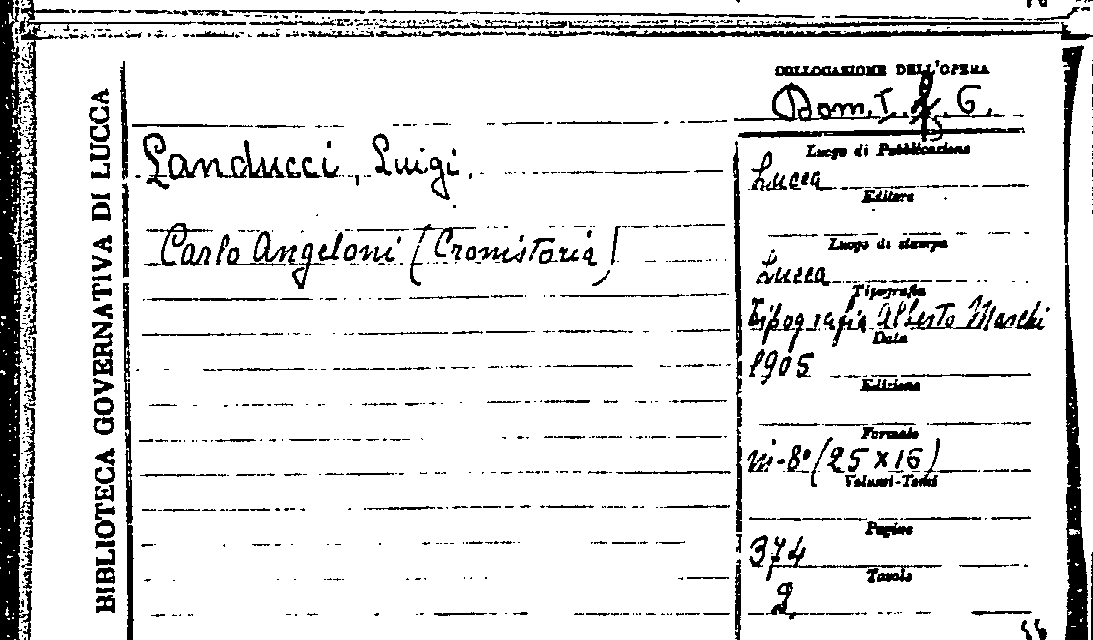 BIBLIOTECA GOVERNATIVA DI LUCCA
COLLOCAZIONE DELL'OPERA
Dom. I. G.
Landucci, Luigi.
Carlo Angeloni (Cronistoria)
Luogo di Pubblicazione
Lucca
Editore
Luogo di stampa
Lucca
Tipografia
Tipografia Alberto Marchi
Data
1905
Edizione
Formato
in-8° (25 x 16)
Volumi-Tomi
Pagine
374
Tavole
2